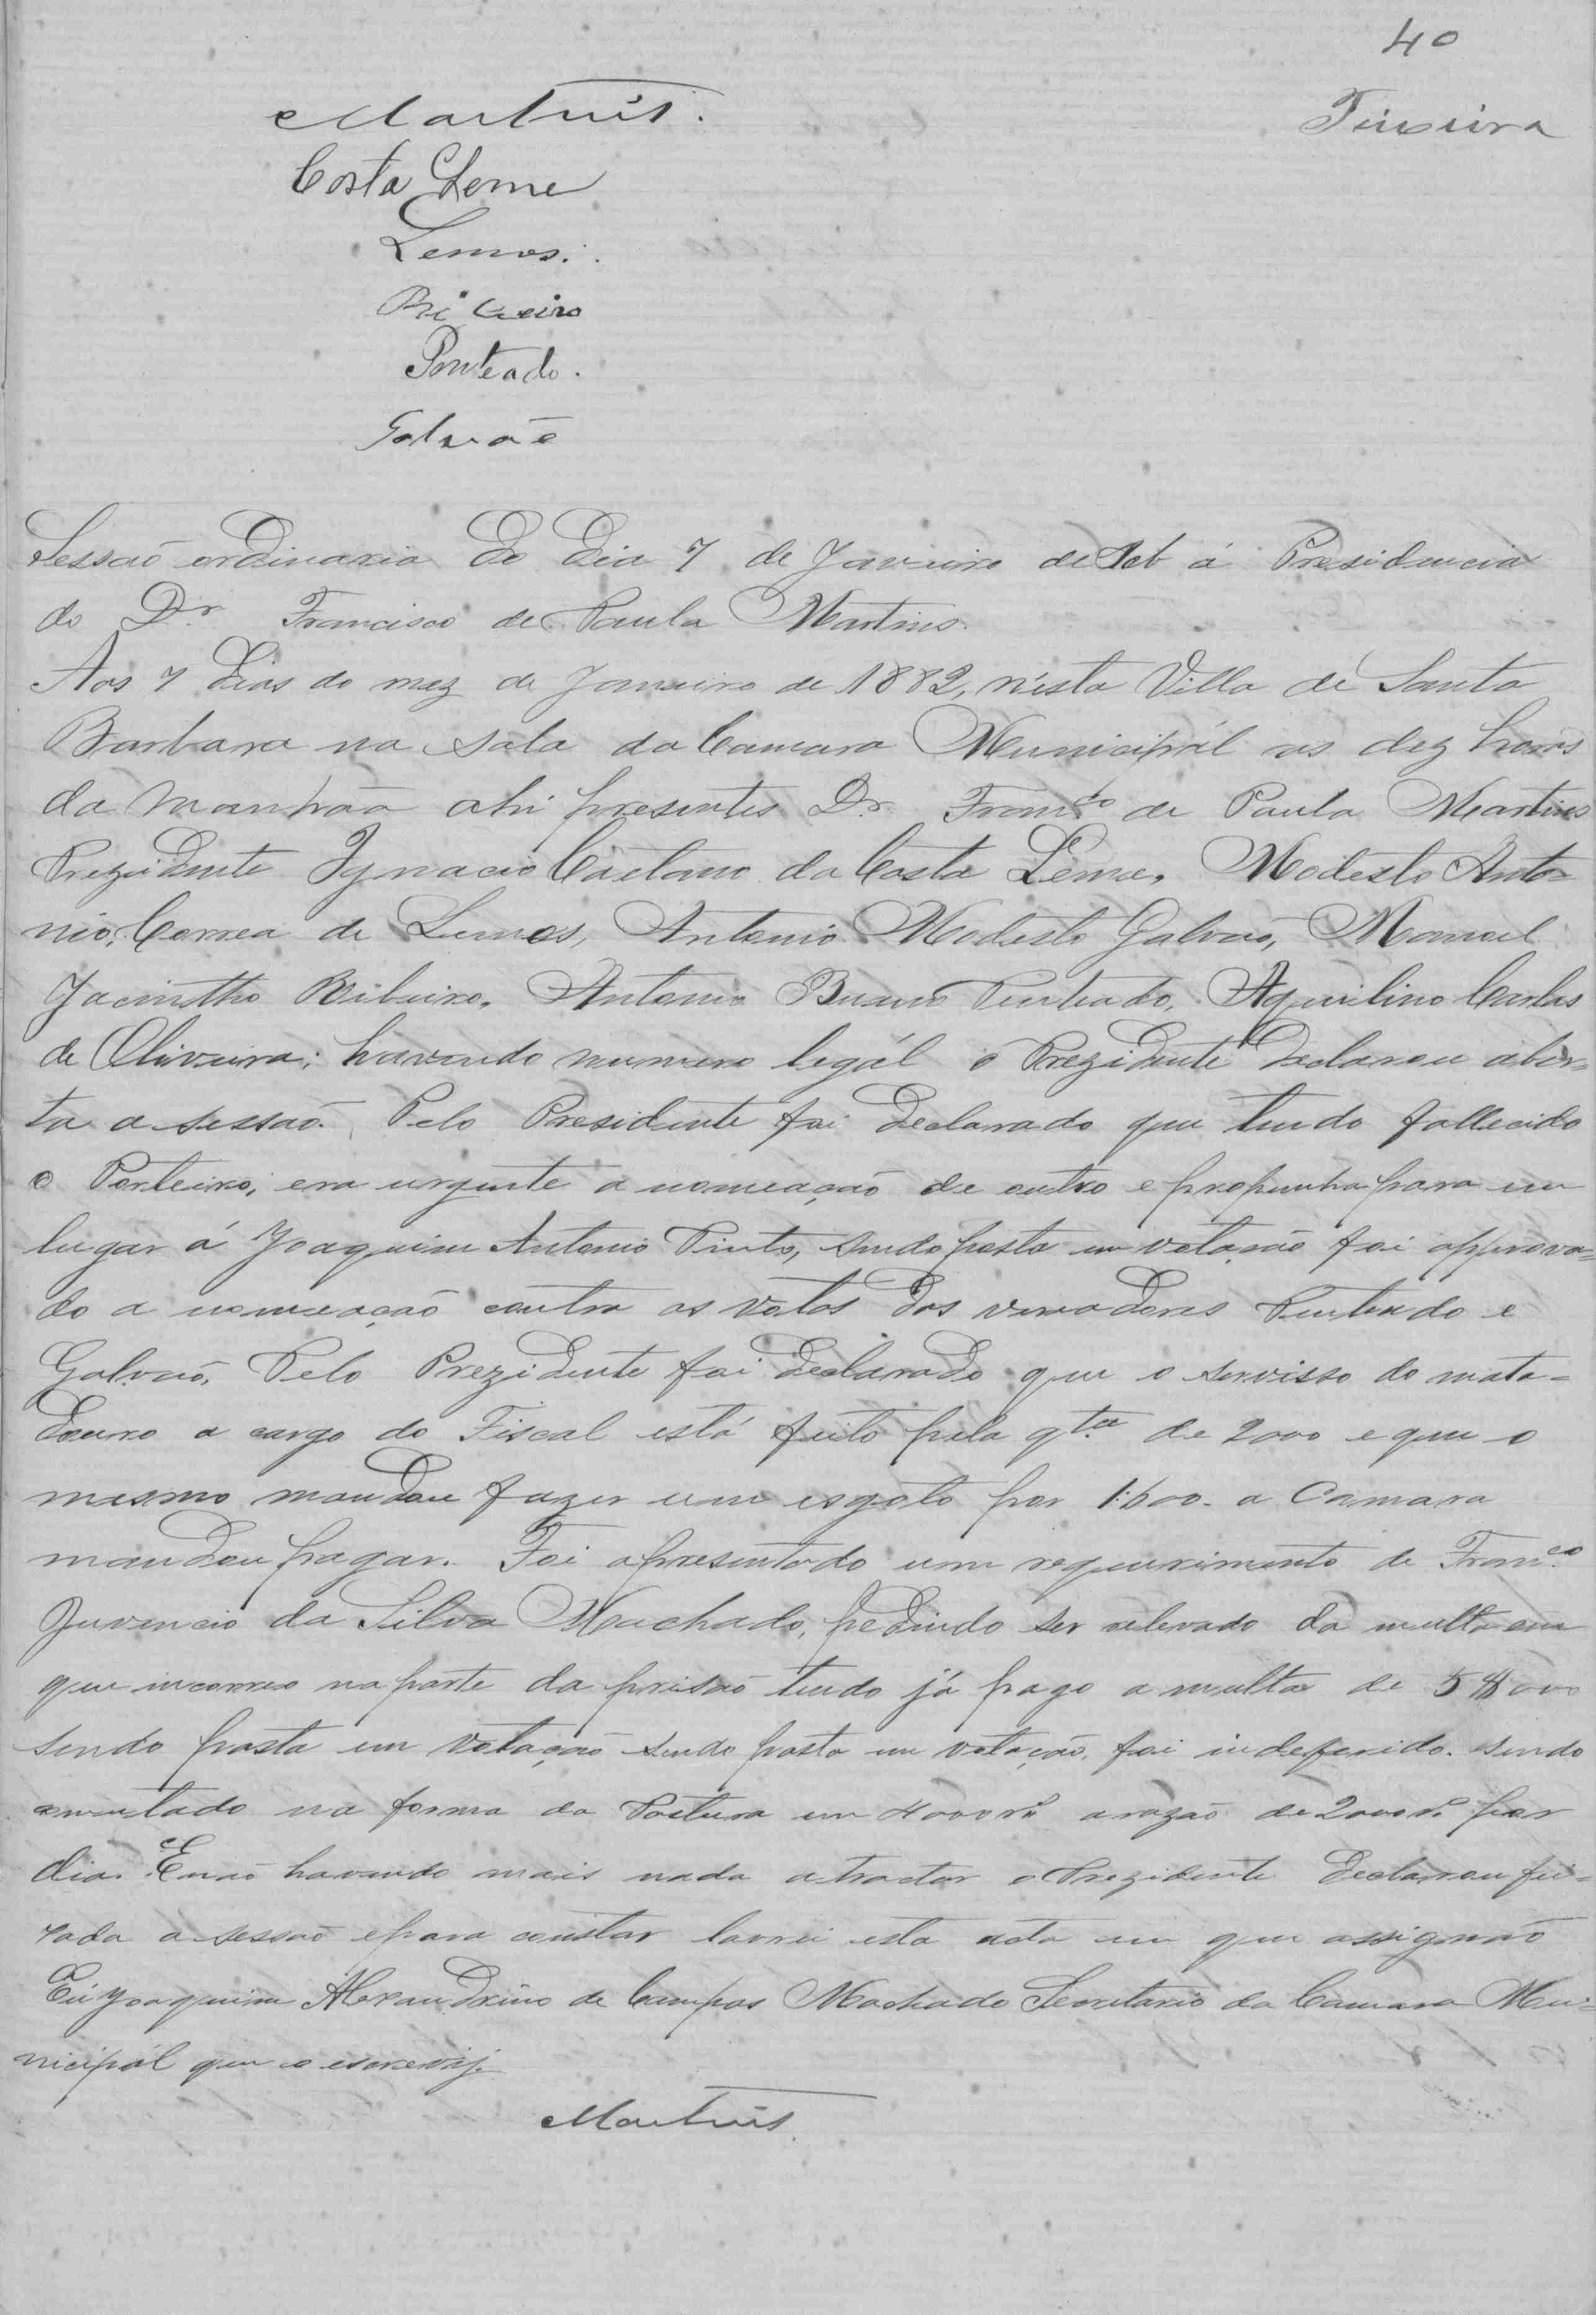 40
Teixeira
Martins.
Costa Leme
Lemos.
Ribeiro
Penteado.
Galvão
Sessaõ ordinaria do dia 7 de Janeiro de á Presidencia
do Dr. Francisco de Paula Martins.
Aos 7 dias do mez de Janeiro de 1882, n'esta Villa de Santa
Barbara na sala da Camara Municipál as dez horas
da manhaã ahi presentes Dr. Franco de Paula Martins
Prezidente Ignacio Caetano da Costa Leme, Modesto Anto=
nio Correa de Lemos, Antonio Modesto Galvaõ, Manoel
Jacintho Ribeiro, Antonio Bueno Penteado, Aquilino Carlos
de Oliveira; havendo numero legál o Prezidente declarou aber=
ta a sessaõ. Pelo Presidente foi declarado que tendo fallecido
o Porteiro, era urgente a nomeaçaõ de outro e propunha para eu
lugar á Joaquim Antonio Pinto, sendo posta em votaçaõ foi approva=
do a nomeaçaõ contra os votos dos vereadores Penteado e
Galvaõ. Pelo Prezidente foi declarado que o servisso do mata=
douro a cargo do Fiscal está feito pela qta de 2000 e que o
mesmo mandou fazer um esgoto por a Camara
mandou pagar. Foi apresentado um requerimento de Franco
Juvencio da Silva Machado, pedindo ser relevado da multa em
que incorreo na parte da prisaõ tendo já pago a multa de 5$000
sendo posta em votaçaõ sendo posta em votaçaõ, foi indeferido. sendo
na forma da Postura em 4000rs a razaõ de 2000rs por
dia. E naõ havendo mais nada a tractar o Prezidente declarou fei=
xada a sessaõ e para constar lavrei esta acta em que assignaõ
Eu Joaquim Alexandrino de Campos Machado Secretario da Camara Mu=
nicipál que o escrevi
Martins.